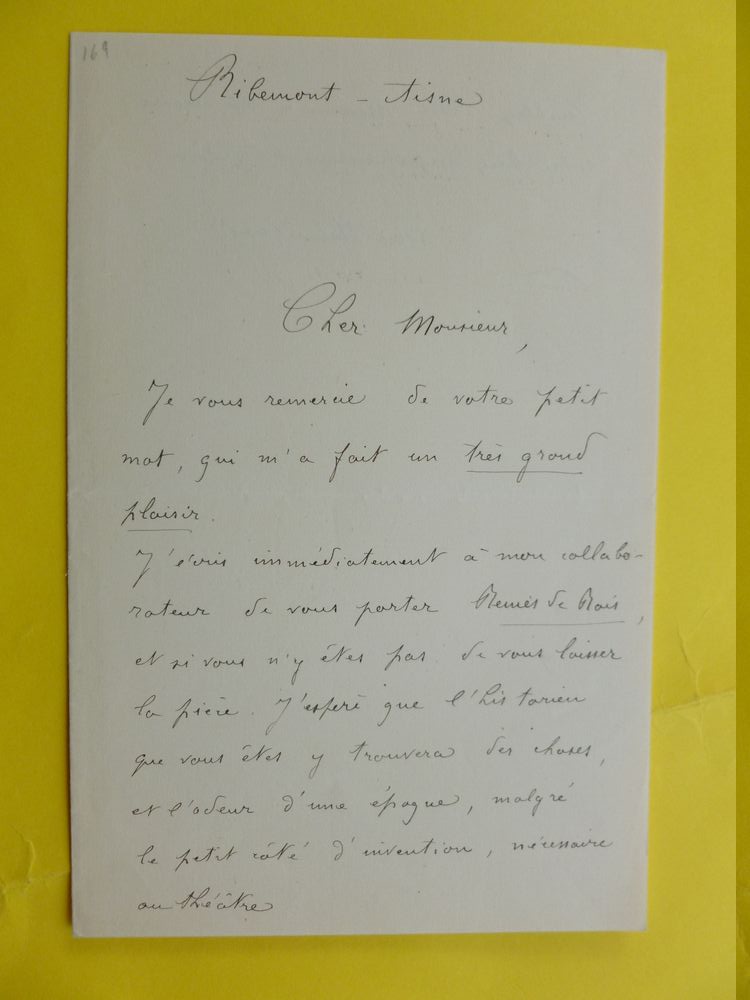 169
Ribemont - Aisne
Cher Monsieur,
Je vous remercie de votre petit
mot, qui m'a fait un très grand
plaisir.
J'écris immédiatement à mon collabo-
rateur de vous porter de
et si vous n'y êtes pas de vous laisser
la pièce. J'espère que l'historien
que vous êtes y trouvera des choses,
et l'odeur d'une époque, malgré
le petit côté d'invention, nécessaire
au théâtre